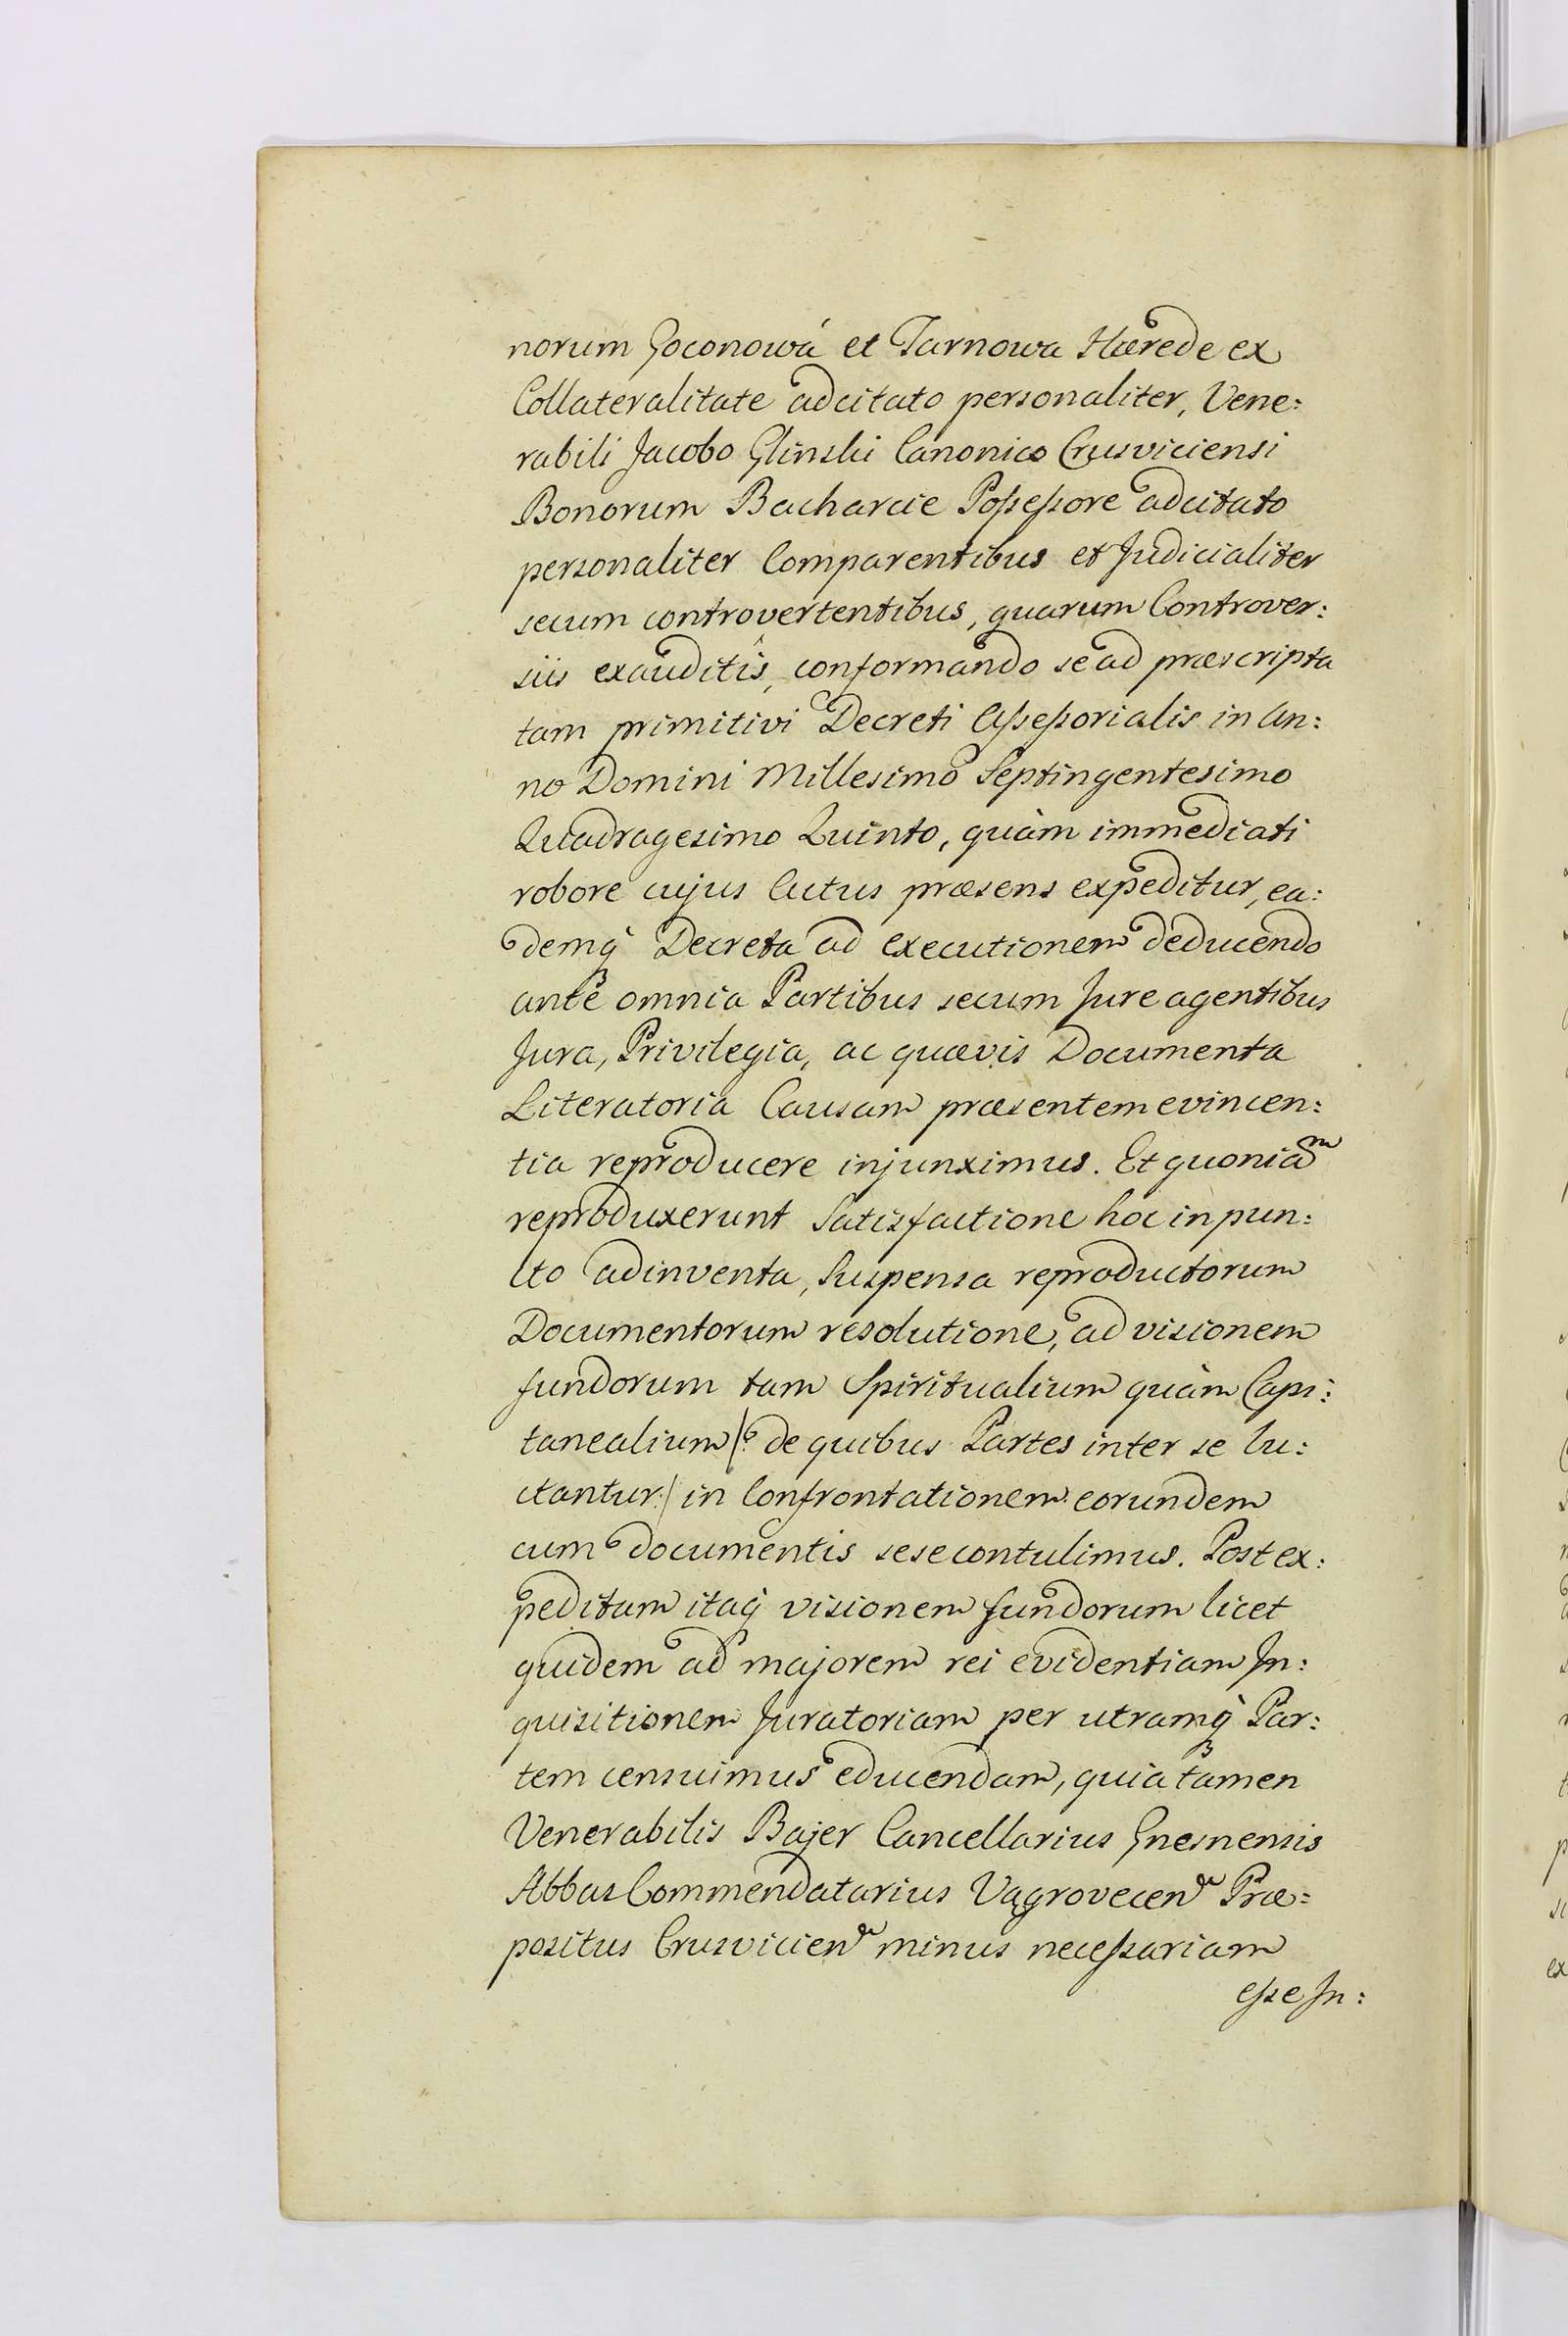 norum Goconowá et Tarnowa Hærede ex
Collateralitate adcitato personaliter, Vene:
rabili Jacobo Glinski Canonico Crusviciensi
Bonorum Bacharcie Possessore adcitato
personaliter Comparentibus et Judicialiter
secum controvertentibus, quarum Controver:
siis exauditîs, conformando se ad præscripta
tam primitivi Decreti Assessorialis in An:
no Domini Millesimo Septingentesimo
Quadragesimo Quinto, quàm immediati
robore cujus Actus præsens expeditur, ea:
demq́ Decreta ad executionem deducendo
ante omnia Partibus secum Jure agentibus
Jura, Privilegia, ac quævis Documenta
Literatoria Causam præsentem evincen:
tia reproducere injunximus. Et quoniam
reproduxerunt Satisfactione hoc in pun:
cto adinventa, Suspensa reproductorum
Documentorum resolutione, ad visionem
fundorum tam Spiritualium quàm Capi:
tanealium /: de quibus Partes inter se lu:
ctantur :/ in Confrontationem eorundem
cum documentis sese contulimus. Post ex:
peditam itaq́ visionem fundorum licet
quidem ad majorem rei evidentiam In:
quisitionem Juratoriam per utramq́ Par:
tem censuimus educendam, quia tamen
Venerabilis Bajer Cancellarius Gnesnensis
Abbas Commendatarius Vągrovecen Præ:
positus Crusvicien minus necessariam
esse In: